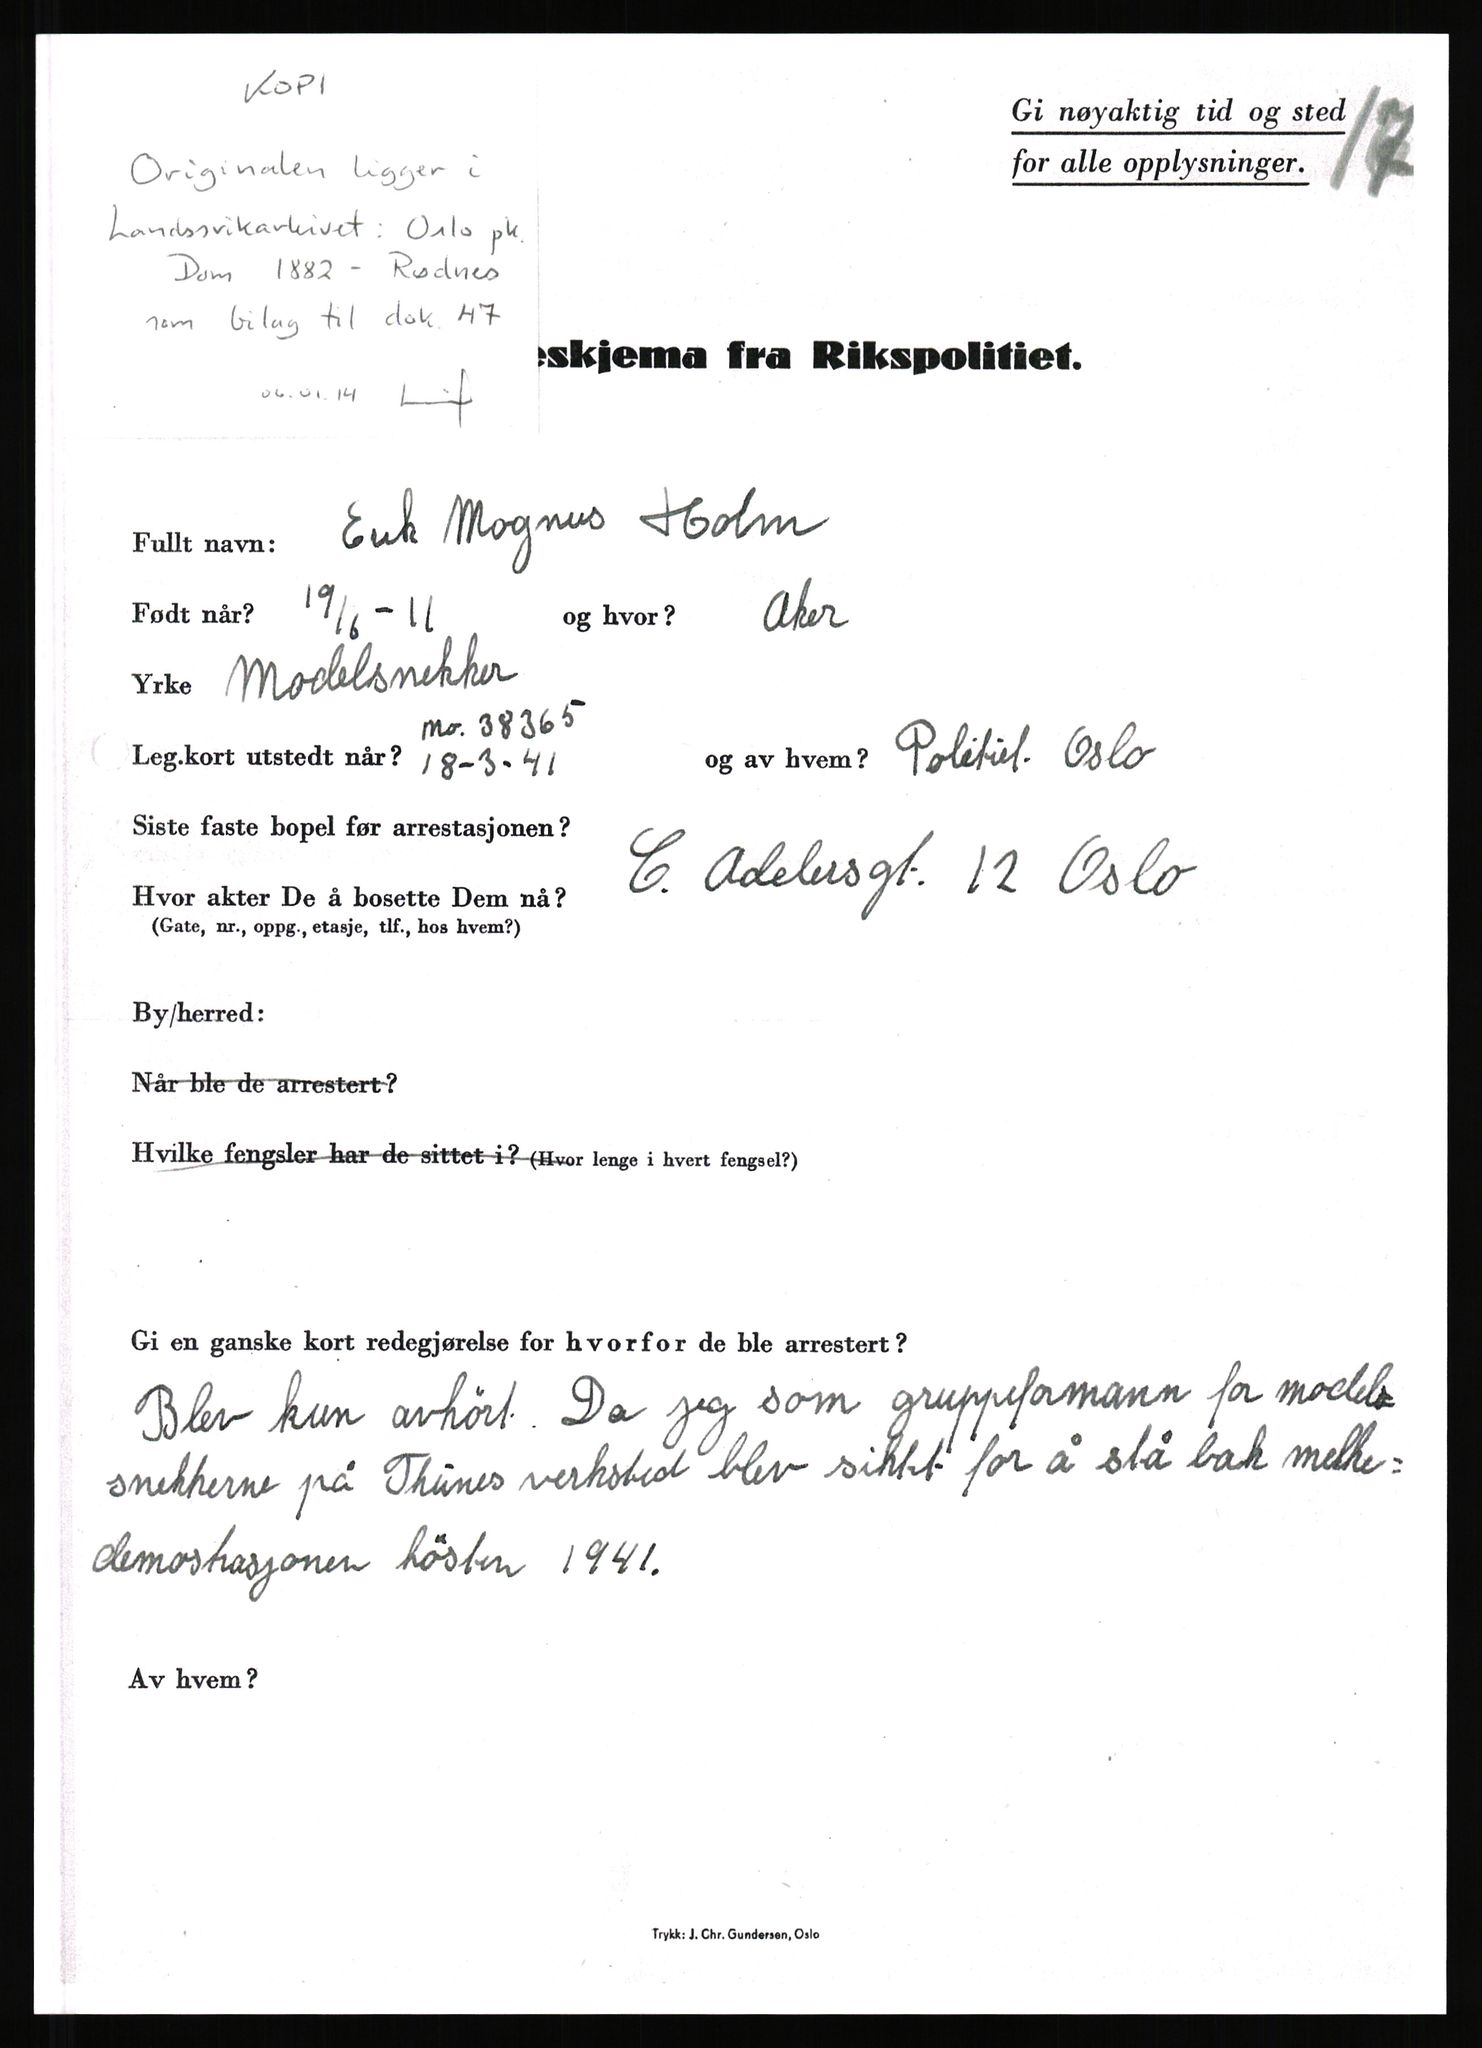 KOPI
Originalen ligger i
Landssvikarkivet: Oslo pk.
Dom 1882 - Rødnes
som bilag til dok. 47
06.01.14
Gi nøyaktig tid og sted
for alle opplysninger.
eskjema fra Rikspolitiet.
Fullt navn: Erik Magnus Holm
Født når? 19/6 - 11 og hvor? Aker
Yrke Modelsnekker
no. 38365
Leg.kort utstedt når? 18-3-41 og av hvem? Politiet. Oslo
Siste faste bopel før arrestasjonen?
C. Adelersgt. 12 Oslo
Hvor akter De å bosette Dem nå?
(Gate, nr., oppg., etasje, tlf., hos hvem?)
By/herred:
Når ble de arrestert?
Hvilke fengsler har de sittet i? (Hvor lenge i hvert fengsel?)
Gi en ganske kort redegjørelse for hvorfor de ble arrestert?
Blev kun avhört. Da jeg som gruppeformann for model
snekkerne på Thunes verksted blev siktet for å stå bak melke=
demostrasjonen hösten 1941.
Av hvem?
Trykk: J. Chr. Gundersen, Oslo